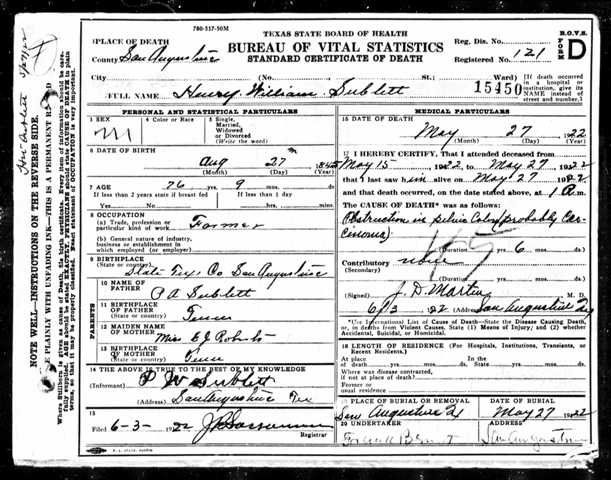 780-517-50M
TEXAS STATE BOARD OF HEALTH
BUREAU OF VITAL STATISTICS
STANDARD CERTIFICATE OF DEATH
B.O.V.S.
FORM D
Reg. Dis. No.
Registered No. 121
PLACE OF DEATH
County San Augustine
City (No. St.: Ward)
15450
[If death occurred in a hospital or institution, give its NAME instead of street and number.]
FULL NAME Henry William Sublett
PERSONAL AND STATISTICAL PARTICULARS
1 SEX M
4 Color or Race
5 Single, Married, Widowed or Divorced (Write the word)
6 DATE OF BIRTH
Aug 27
(Month) (Day) (Year)
7 AGE 76 9
If less than 2 years state if breast fed If less than 1 day
Yes No hours minutes
8 OCCUPATION
(a) Trade, profession or particular kind of work Farmer
(b) General nature of industry, business or establishment in which employed (or employer)
9 BIRTHPLACE
(State or country) State Tex Co San Augustine
PARENTS
10 NAME OF FATHER P A Sublett
11 BIRTHPLACE OF FATHER (State or country) Tenn
12 MAIDEN NAME OF MOTHER Miss E J Roberts
13 BIRTHPLACE OF MOTHER (State or country) Tenn
14 THE ABOVE IS TRUE TO THE BEST OF MY KNOWLEDGE
(Informant) P W Sublett
(Address) San Augustine Tex
15
Filed 6-3- 1922
Registrar
MEDICAL PARTICULARS
16 DATE OF DEATH
May 27 1922
(Month) (Day) (Year)
17 I HEREBY CERTIFY, That I attended deceased from
May 15 1922 to May 27 1922
that I last saw him alive on May 27 1922
and that death occurred, on the date stated above, at 1 A m.
The CAUSE OF DEATH* was as follows:
Obstruction in pelvic Colon (probably Carcinoma)
(Duration) yrs. 6 mos. ds.
Contributory none
(Secondary)
(Duration) yrs. mos. ds.
(Signed) J. D. Martin M. D.
6/3 1922 (Address) San Augustine Tex
*Use International List of Cause of Death—State the Disease Causing Death, or, in deaths from Violent Causes, State (1) Means of Injury; and (2) whether Accidental, Suicidal, or Homicidal.
18 LENGTH OF RESIDENCE (For Hospitals, Institutions, Transients, or Recent Residents.)
At place of death yrs. mos. ds. In the State yrs. mos. ds.
Where was disease contracted, if not at place of death?
Former or usual residence
19 PLACE OF BURIAL OR REMOVAL DATE OF BURIAL
San Augustine Tx May 27 1922
20 UNDERTAKER ADDRESS
San Augustine
NOTE WELL—INSTRUCTIONS ON THE REVERSE SIDE.